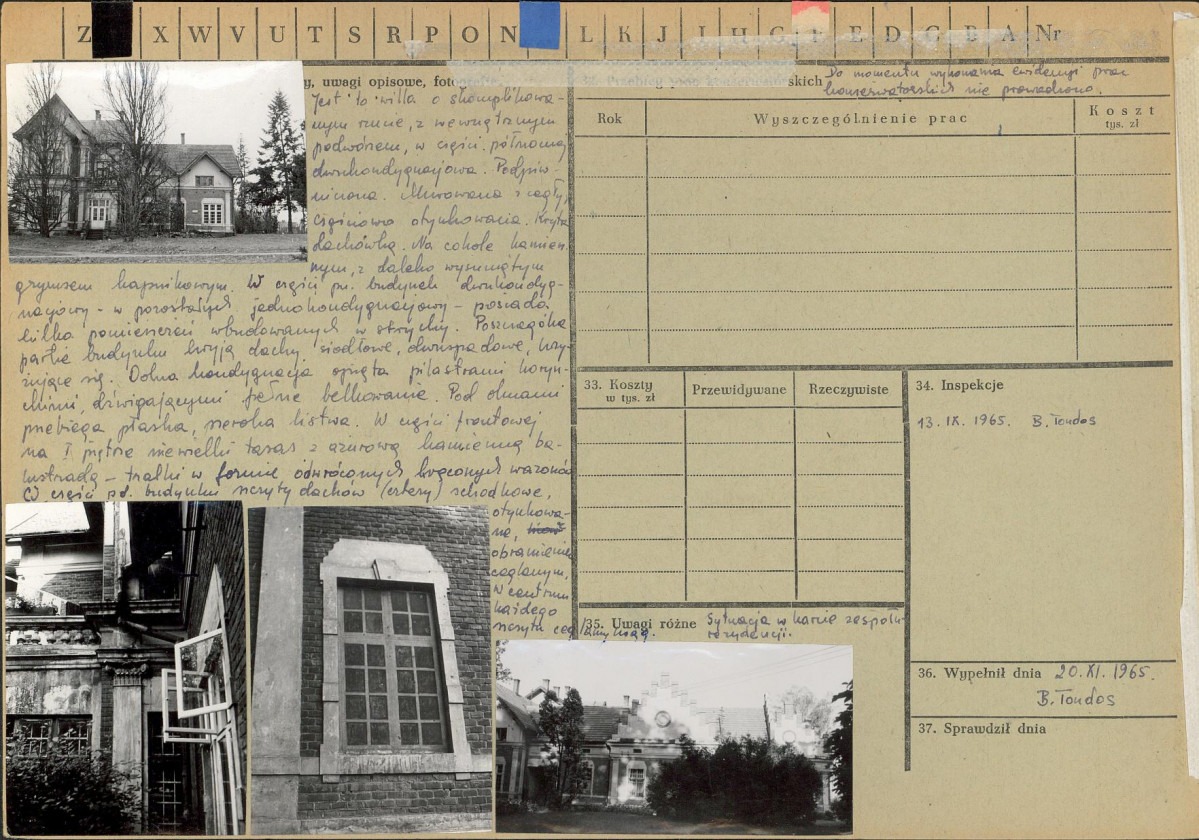 Z X W V U T S R P O N L K J I H G F E D C B A Nr
y, uwagi opisowe, foto
Jest to willa o skomplikowa-
nym rzucie, z wewnętrznym
podwórzem, w części północnej
dwukondygnacjowa. Podpiw-
niczona. Murowana z cegły,
częściowo otynkowana. Kryta
dachówką. Na cokole kamien-
nym, z daleko wysuniętym
gzymsem kapnikowym. W części pn. budynek dwukondyg-
nacjowy - w pozostałych jednokondygnacjowy - posiada
kilka pomieszczeń wbudowanych w strychy. Poszczególne
partie budynku kryją dachy siodłowe, dwuspadowe, krzy-
żujące się. Dolna kondygnacja opięta pilastrami koryn-
ckimi, dźwigającymi pełne belkowanie. Pod oknami
przebiega płaska, szeroka listwa. W części frontowej
na I piętrze niewielki taras z ażurową kamienną ba-
lustradą - tralki w formie odwróconych kręconych wazonów
W części pd. budynku szczyty dachów (cztery) schodkowe,
otynkowa-
ne,
obramienie
ceglanym.
W centrum
każdego
szczytu ceglany
32. Przebieg prac konserwatorskich Do momentu wykonania ewidencji prac
konserwatorskich nie prowadzono.
Rok Wyszczególnienie prac Koszt
tys. zł
33. Koszty
w tys. zł
Przewidywane Rzeczywiste
34. Inspekcje
13. IX. 1965. B. Tondos
35. Uwagi różne Sytuacja w karcie zespołu
rezydencji.
36. Wypełnił dnia 20. XI. 1965.
B. Tondos
37. Sprawdził dnia